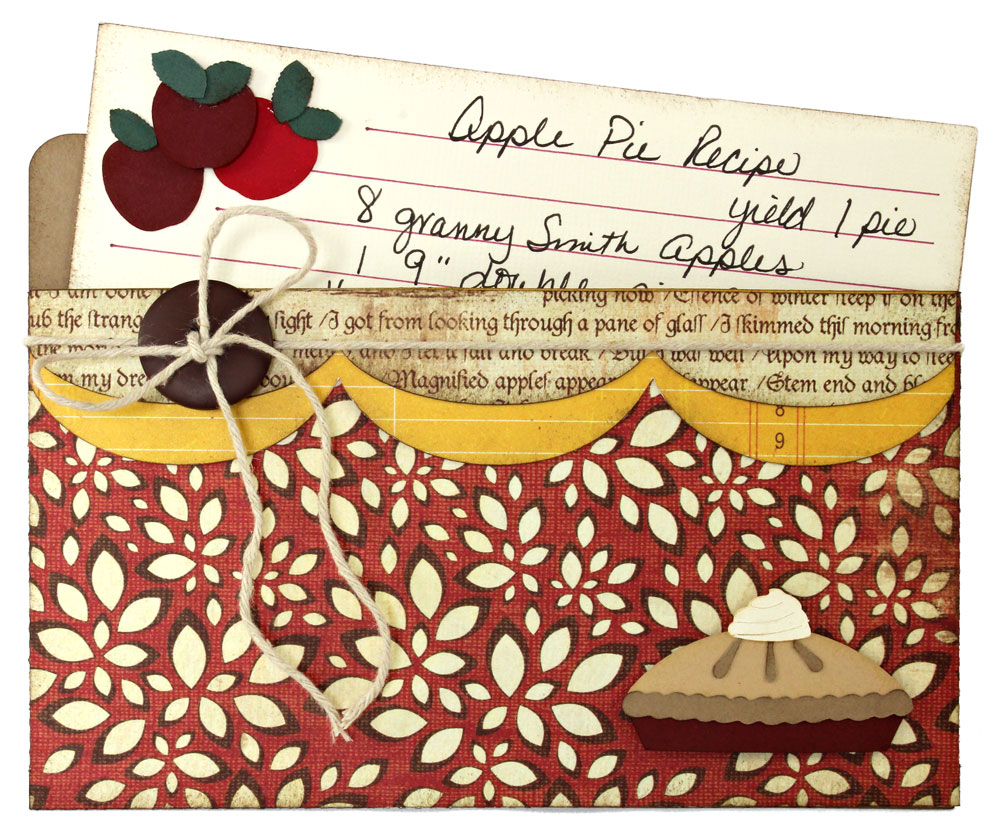 Apple Pie Recipe
yield 1 pie
8 granny Smith apples
1 9" double
picking now /Essence of winter sleep is on the
ub the strang sight /I got from looking through a pane of glass /I skimmed this morning fro
and I let it fall and break /But was well /Upon my way to slee
m my dre Magnified apples appear appear /Stem end and bl
8
9